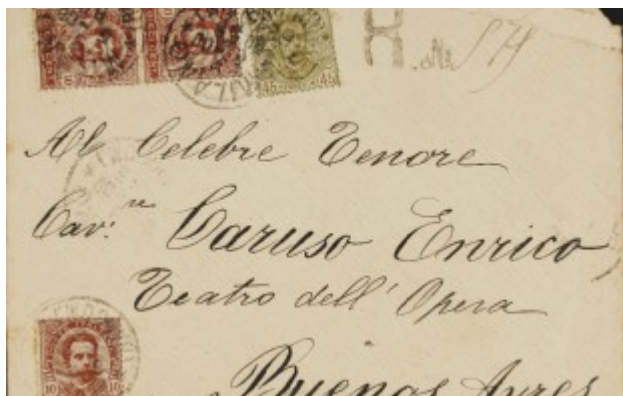 45 45
R. No 54
Al Celebre Tenore
Cav.re Caruso Enrico
Teatro dell' Opera
10 10
Buenos Ayres